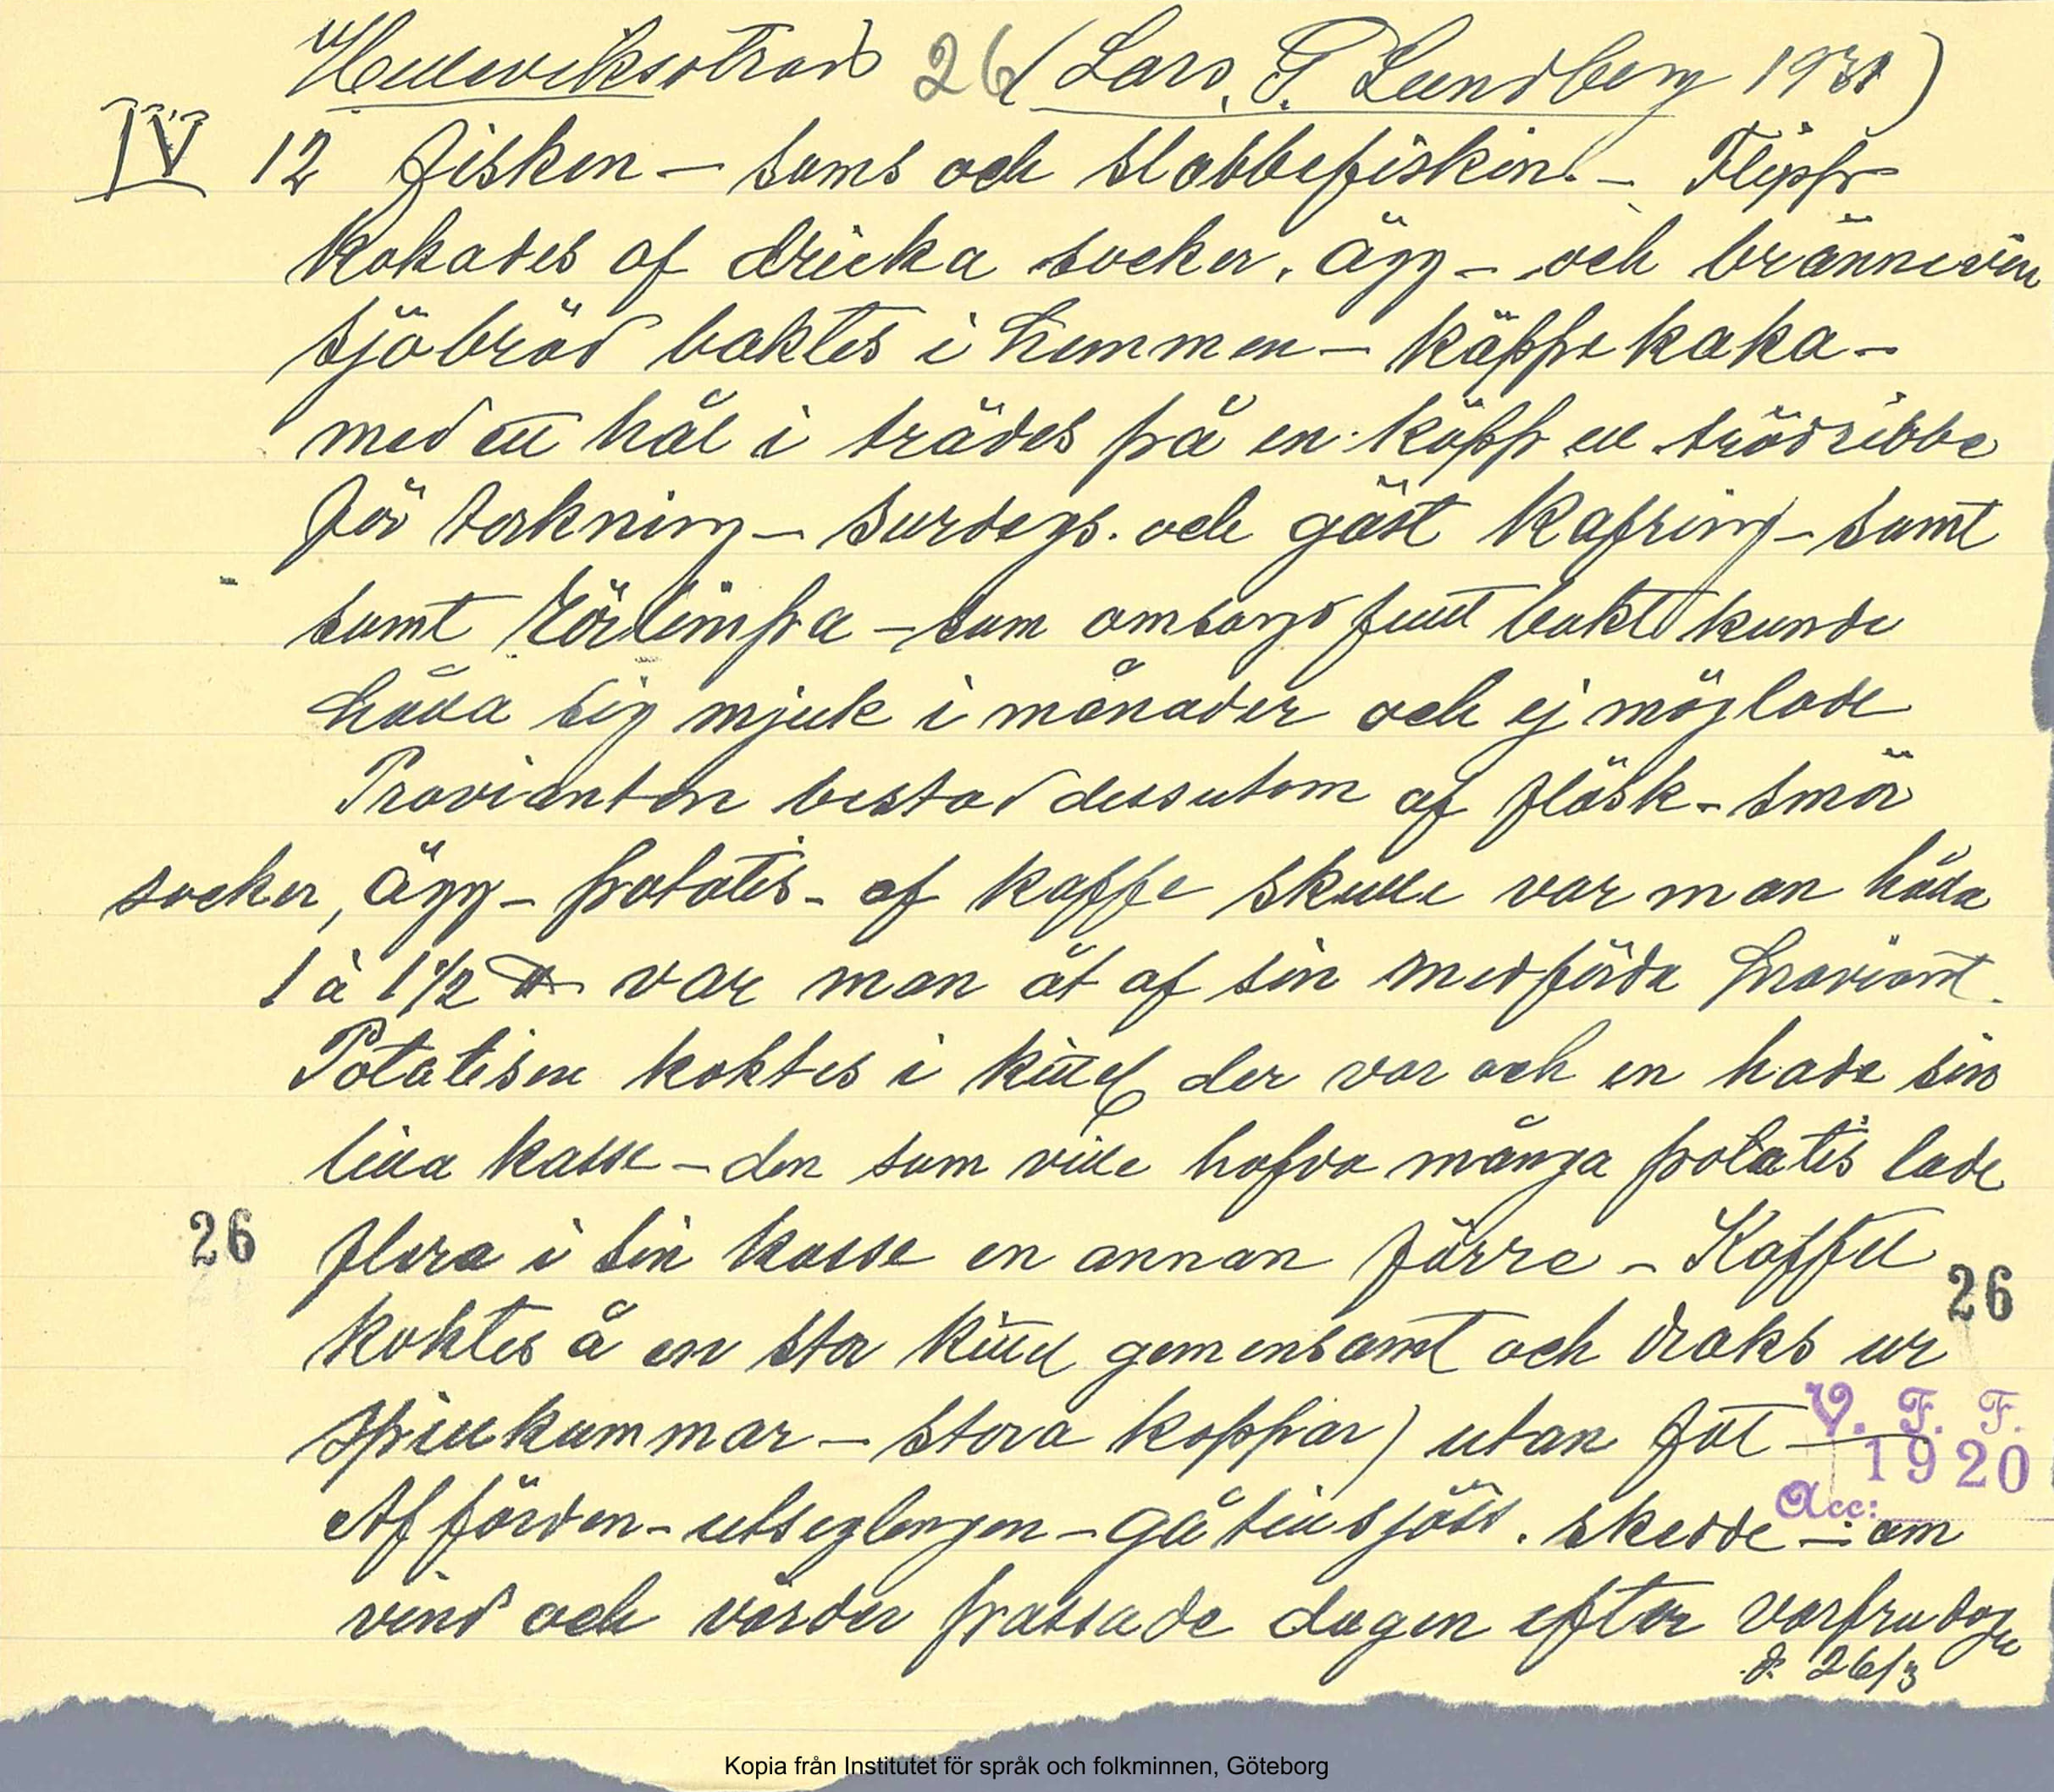 Helleviksstrand 26 (Lars, P. Lundberg 1931)
IV 12 fisken – sams och slabbefisken. – Flipp
kokades af dricka socker. ägg – och brännevin
Sjöbröd baktes i hemmen – käppe kaka –
med ett hål i trädes på en käpp ell trädribbe
för torkning – surdegs. och gäst Kafring – samt
samt rörlimpa – som omsorgsfullt bakt kunde
hålla sig mjuk i månader och ej möglade
Provianten bestod dessutom af fläsk – smör
socker, ägg – potatis – af kaffe skulle var man hålla
1 à 1 1/2 ℔ var man åt af sin medförda proviant.
Potatisen koktes i kittel der var och en hade sin
lilla kasse – den som ville hafva många potatis lade
flera i sin kasse en annan färre – Kaffet
26
26
koktes å en stor kittel gemensamt och draks ur
spillkummar – stora koppar) utan fot –
V. F. F.
1920
Acc:
Affärden – utseglingen – gå till sjöss. skedde – om
vind och väder passade dagen efter varfrudagen
d. 26/3
Kopia från Institutet för språk och folkminnen, Göteborg